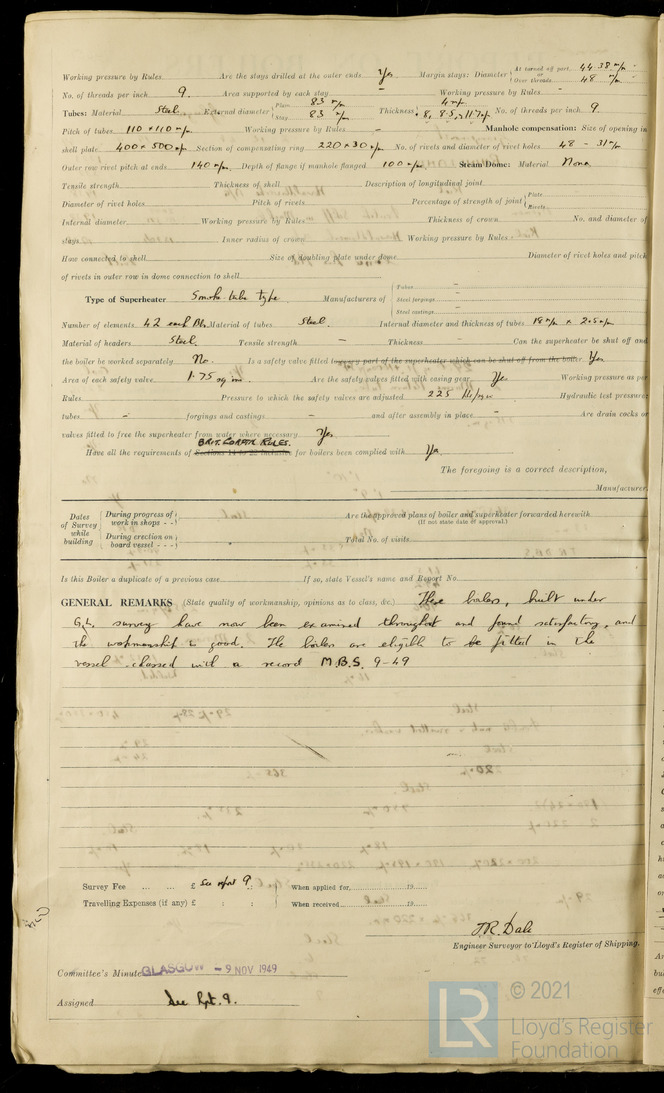 Working pressure by Rules Are the stays drilled at the outer ends Yes Margin stays: Diameter { At turned off part, 44.38 m/m or Over threads 48 m/m
No. of threads per inch 9. Area supported by each stay - Working pressure by Rules -
Tubes: Material Steel External diameter { Plain 83 m/m Stay 83 m/m Thickness { 4 m/m 8, 8.5, 11.7 m/m No. of threads per inch 9
Pitch of tubes 110 x 110 m/m Working pressure by Rules - Manhole compensation: Size of opening in
shell plate 400 x 500 m/m Section of compensating ring 220 x 30 m/m No. of rivets and diameter of rivet holes 48 - 31 m/m
Outer row rivet pitch at ends 140 m/m Depth of flange if manhole flanged 100 m/m Steam Dome: Material None
Tensile strength Thickness of shell Description of longitudinal joint
Diameter of rivet holes Pitch of rivets Percentage of strength of joint { Plate Rivets
Internal diameter Working pressure by Rules Thickness of crown No. and diameter of
stays Inner radius of crown Working pressure by Rules
How connected to shell Size of doubling plate under dome Diameter of rivet holes and pitch
of rivets in outer row in dome connection to shell
Type of Superheater Smoke tube type Manufacturers of { Tubes - Steel forgings - Steel castings -
Number of elements 42 each Blr. Material of tubes Steel Internal diameter and thickness of tubes 18 m/m x 2.5 m/m
Material of headers Steel Tensile strength - Thickness - Can the superheater be shut off and
the boiler be worked separately No. Is a safety valve fitted to every part of the superheater which can be shut off from the boiler Yes
Area of each safety valve 1.75 sq ins. Are the safety valves fitted with easing gear Yes Working pressure as per
Rules Pressure to which the safety valves are adjusted 225 lbs/sq in Hydraulic test pressure:
tubes - forgings and castings - and after assembly in place - Are drain cocks or
valves fitted to free the superheater from water where necessary Yes
BRIT. CORPN. RULES.
Have all the requirements of Sections 14 to 22 inclusive for boilers been complied with Yes
The foregoing is a correct description,
Manufacturer.
Dates of Survey while building { During progress of work in shops - - } Are the approved plans of boiler and superheater forwarded herewith
(If not state date of approval.)
{ During erection on board vessel - - - } Total No. of visits
Is this Boiler a duplicate of a previous case If so, state Vessel's name and Report No.
GENERAL REMARKS (State quality of workmanship, opinions as to class, &c.) These boilers, built under
G.L. survey have now been examined throughout and found satisfactory, and
the workmanship is good. The boilers are eligible to be fitted in the
vessel classed with a record M.B.S. 9-49
Survey Fee ... ... £ See rpt 9. : When applied for, 19
Travelling Expenses (if any) £ : : When received 19
J.R. Dale
Engineer Surveyor to Lloyd's Register of Shipping.
Committee's Minute GLASGOW - 9 NOV 1949
Assigned See Rpt. 9.
LR
© 2021
Lloyd's Register
Foundation